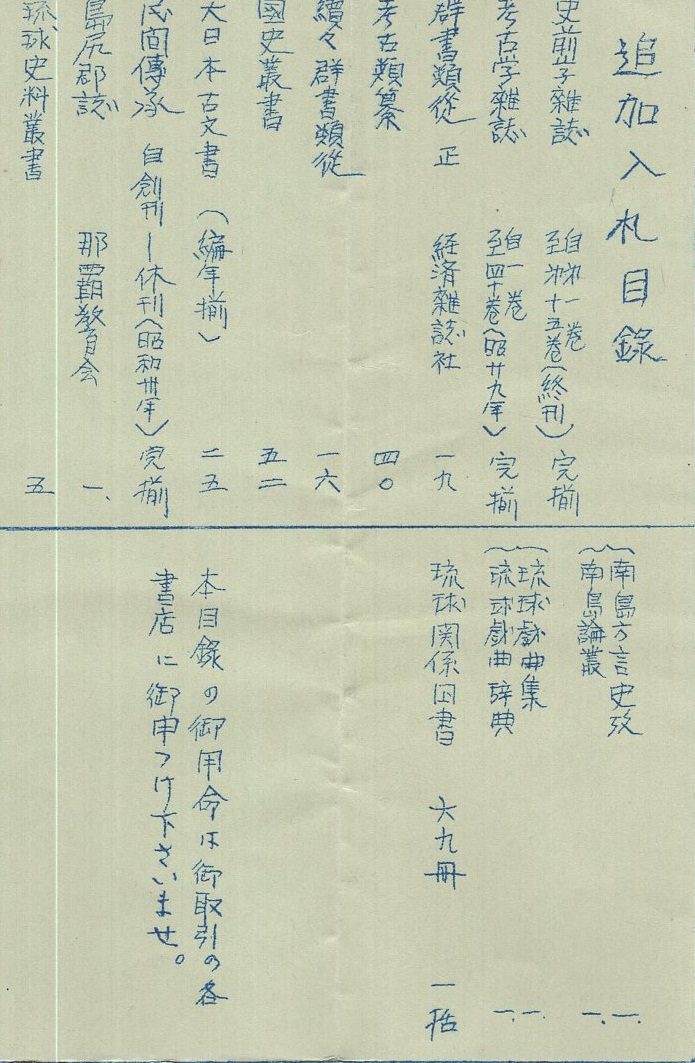 追加入札目錄
史前学雑誌 自第一巻 至第十五巻(終刊) 完揃
考古学雜誌 自一巻 至四十巻(昭廿九年) 完揃
群書類従 正 経済雑誌社 一九
考古類纂 四〇
續々群書類従 一六
國史叢書 五二
大日本古文書(編年揃) 二五
民间傳承 自創刊ー休刊(昭和卅年) 完揃
島尻郡誌 那覇教育会 一、
琉球史料叢書 五
南島方言史攷 一、
南島論叢 一、
琉球戯曲集 一、
琉球戯曲辞典 一、
琉球関係図書 六九冊 一括
本目錄の御用命は御取引の各
書店に御申つけ下さいませ。